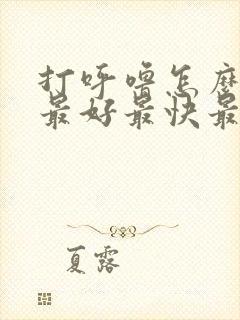 打呼噜怎么
最好最快最
夏露